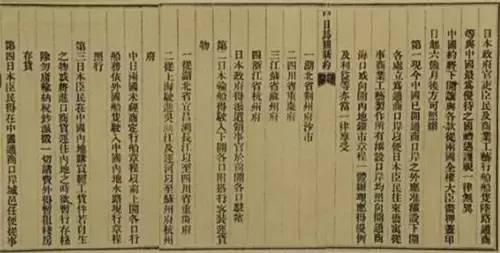 日本政府官吏臣民及商業工藝行船船隻陸路通商
等與中國最為優待之國禮遇護視一律無異
中國約將下開讓與各款從兩國全權大臣畫押蓋印
日起六個月後方可照辦
第一現今中國已開通商口岸之外應准添設下開
各處立為通商口岸以便日本臣民往來僑寓從
事商業工藝製作所有添設口岸均照向開通商
海口或向開內地鎮市章程一體辦理應得優例
及利益等亦當一律享受
日馬關新約
一湖北省荊州府沙市
二四川省重慶府
三江蘇省蘇州府
四浙江省杭州府
日本政府得派遣領事官於前開各口駐紮
第二日本輪船得駛入下開各口附搭行客裝運貨
物
一從湖北省宜昌溯長江以至四川省重慶府
二從上海駛進吳淞江及運河以至蘇州府杭州
府
中日兩國未經商定行船章程以前上開各口行
船務依外國船隻駛入中國內地水路現行章程
照行
第三日本臣民在中國內地購買經工貨件若自生
之物或將進口商貨運往內地之時欲暫行存棧
除勿庸輸納稅鈔派徵一切諸費外得暫租棧房
存貨
第四日本臣民得在中國通商口岸城邑任便從事